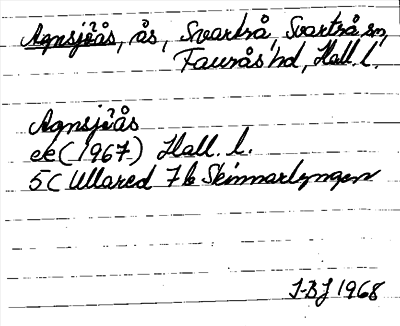 Agnsjöås, ås, Svartrå, Svartrå sn,
Faurås hd, Hall. l.
Agnsjöås
ek (1967) Hall. l.
5C Ullared 7b Skinnarlyngen
J-BJ 1968